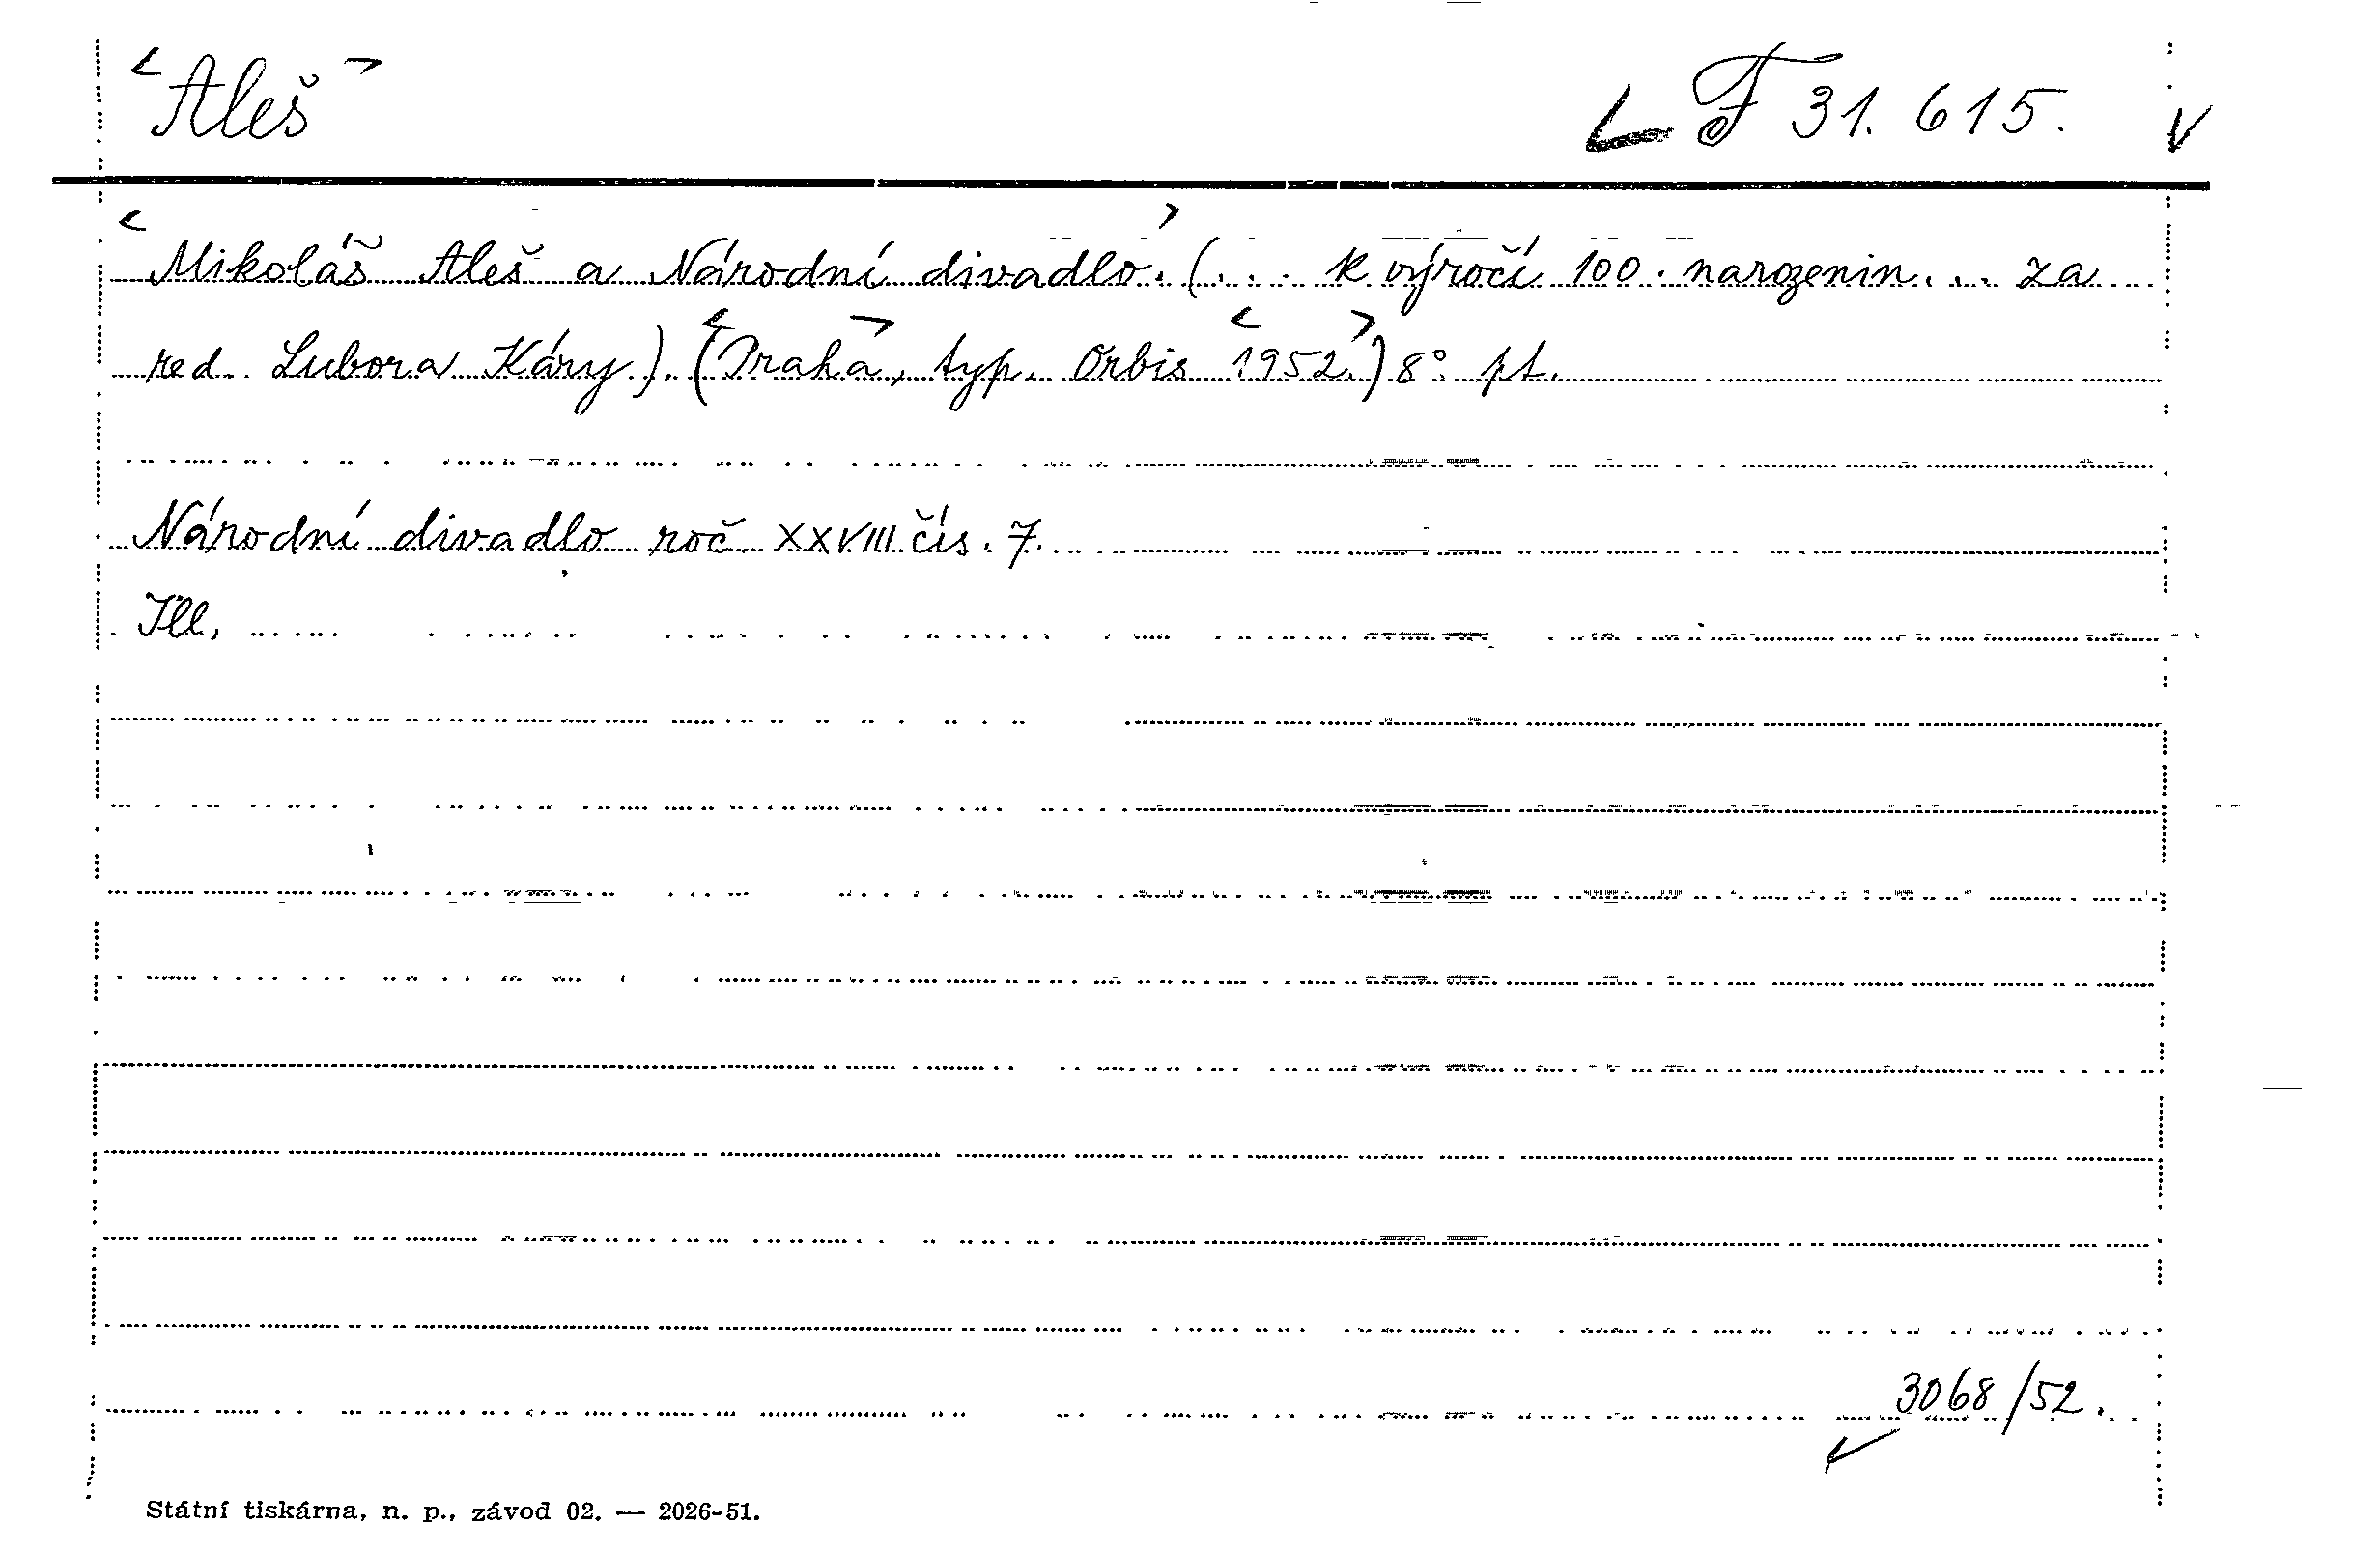 <Aleš> F 31. 615.
<Mikoláš Aleš a Národní divadlo.> (... k výročí 100. narozenin... za
red. Lubora Káry). (<Praha>, typ. Orbis <1952.>) 8° pt.
Národní divadlo roč. XXVIII čís. 7.
Ill.
3068/52.
Státní tiskárna, n. p., závod 02. — 2026-51.